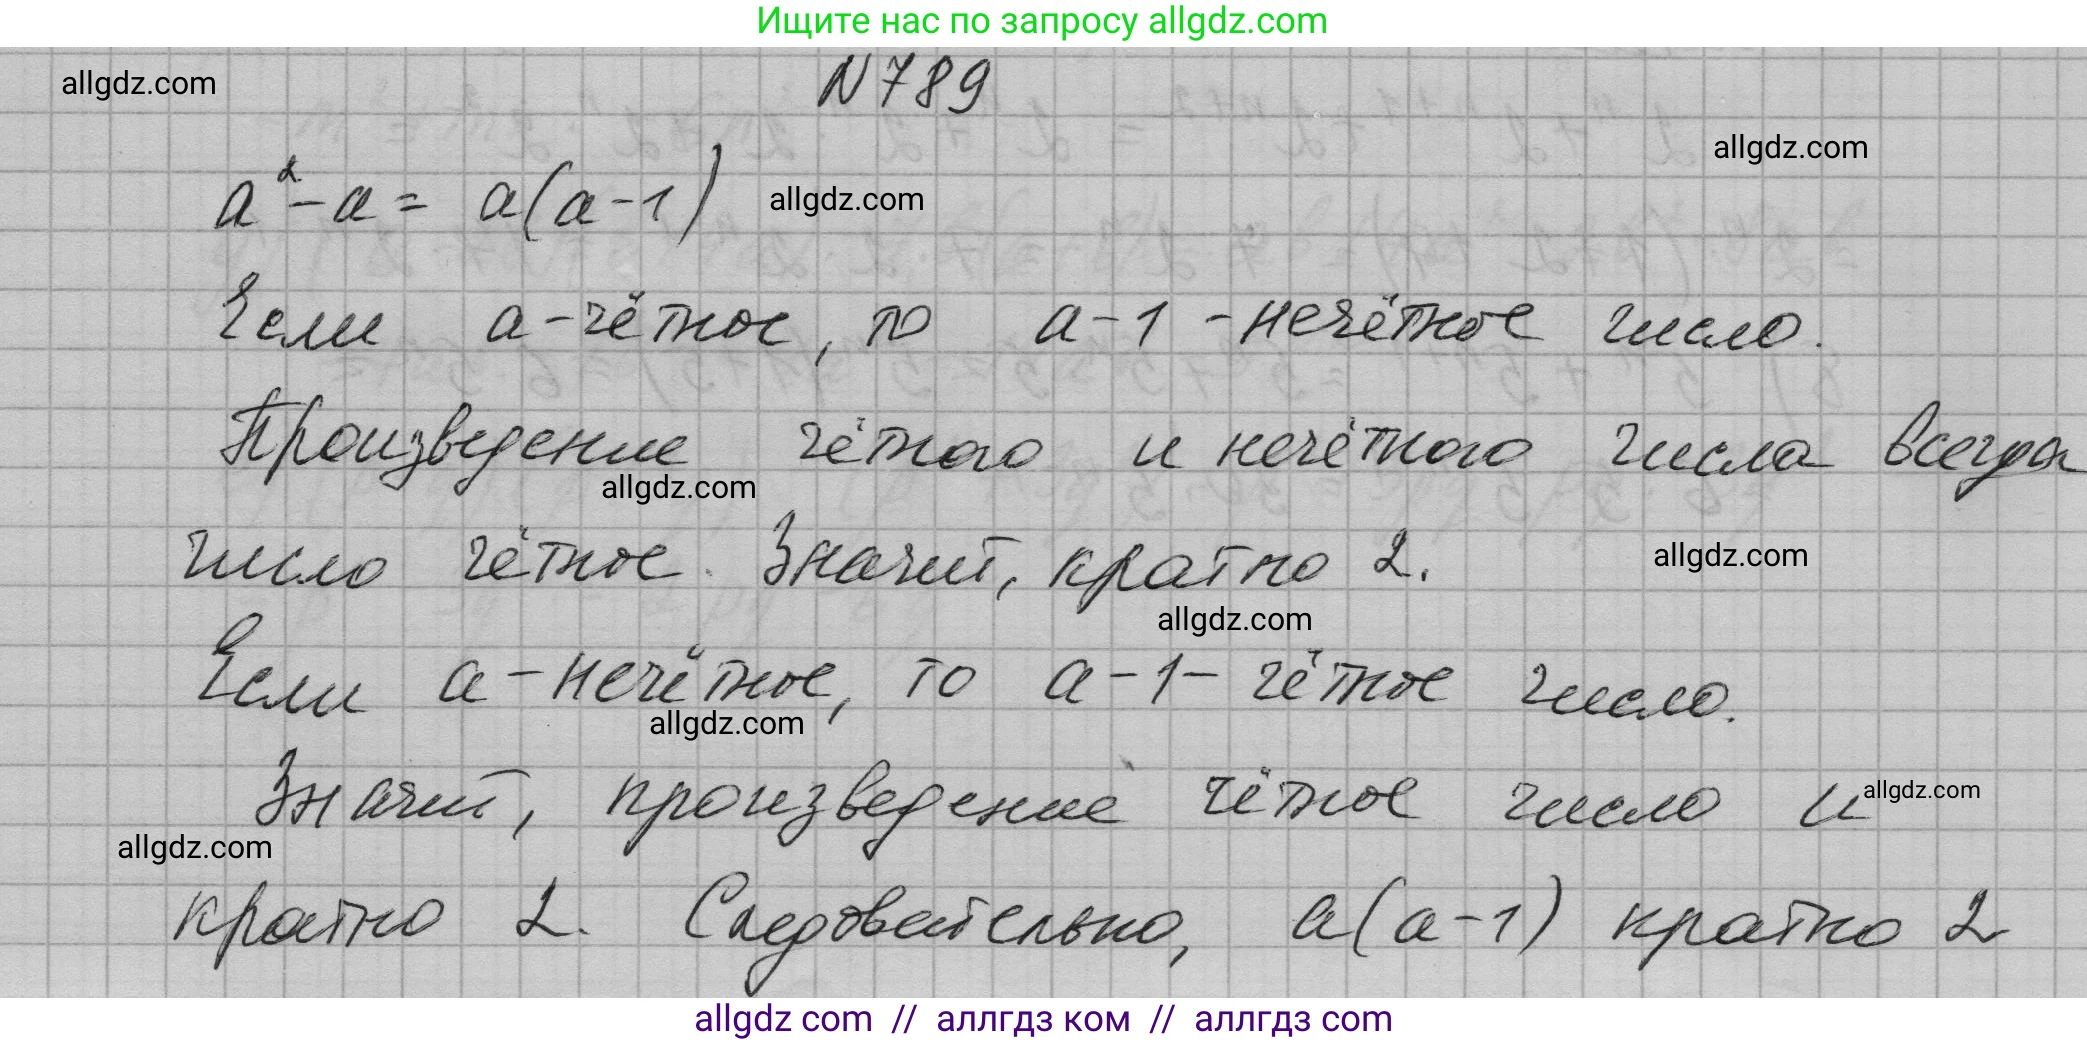 Ищите нас по запросу allgdz.com
N 789
allgdz.com
allgdz.com
a² - a = a(a-1)
allgdz.com
Если a - чётное, то a-1 - нечётное число.
Произведение чётного и нечётного числа всегда
allgdz.com
число чётное. Значит, кратно 2.
allgdz.com
allgdz.com
Если a - нечётное, то a-1 - чётное число.
allgdz.com
Значит, произведение чётное число и
allgdz.com
allgdz.com
кратно 2. Следовательно, a(a-1) кратно 2
allgdz com // аллгдз ком // аллгдз com